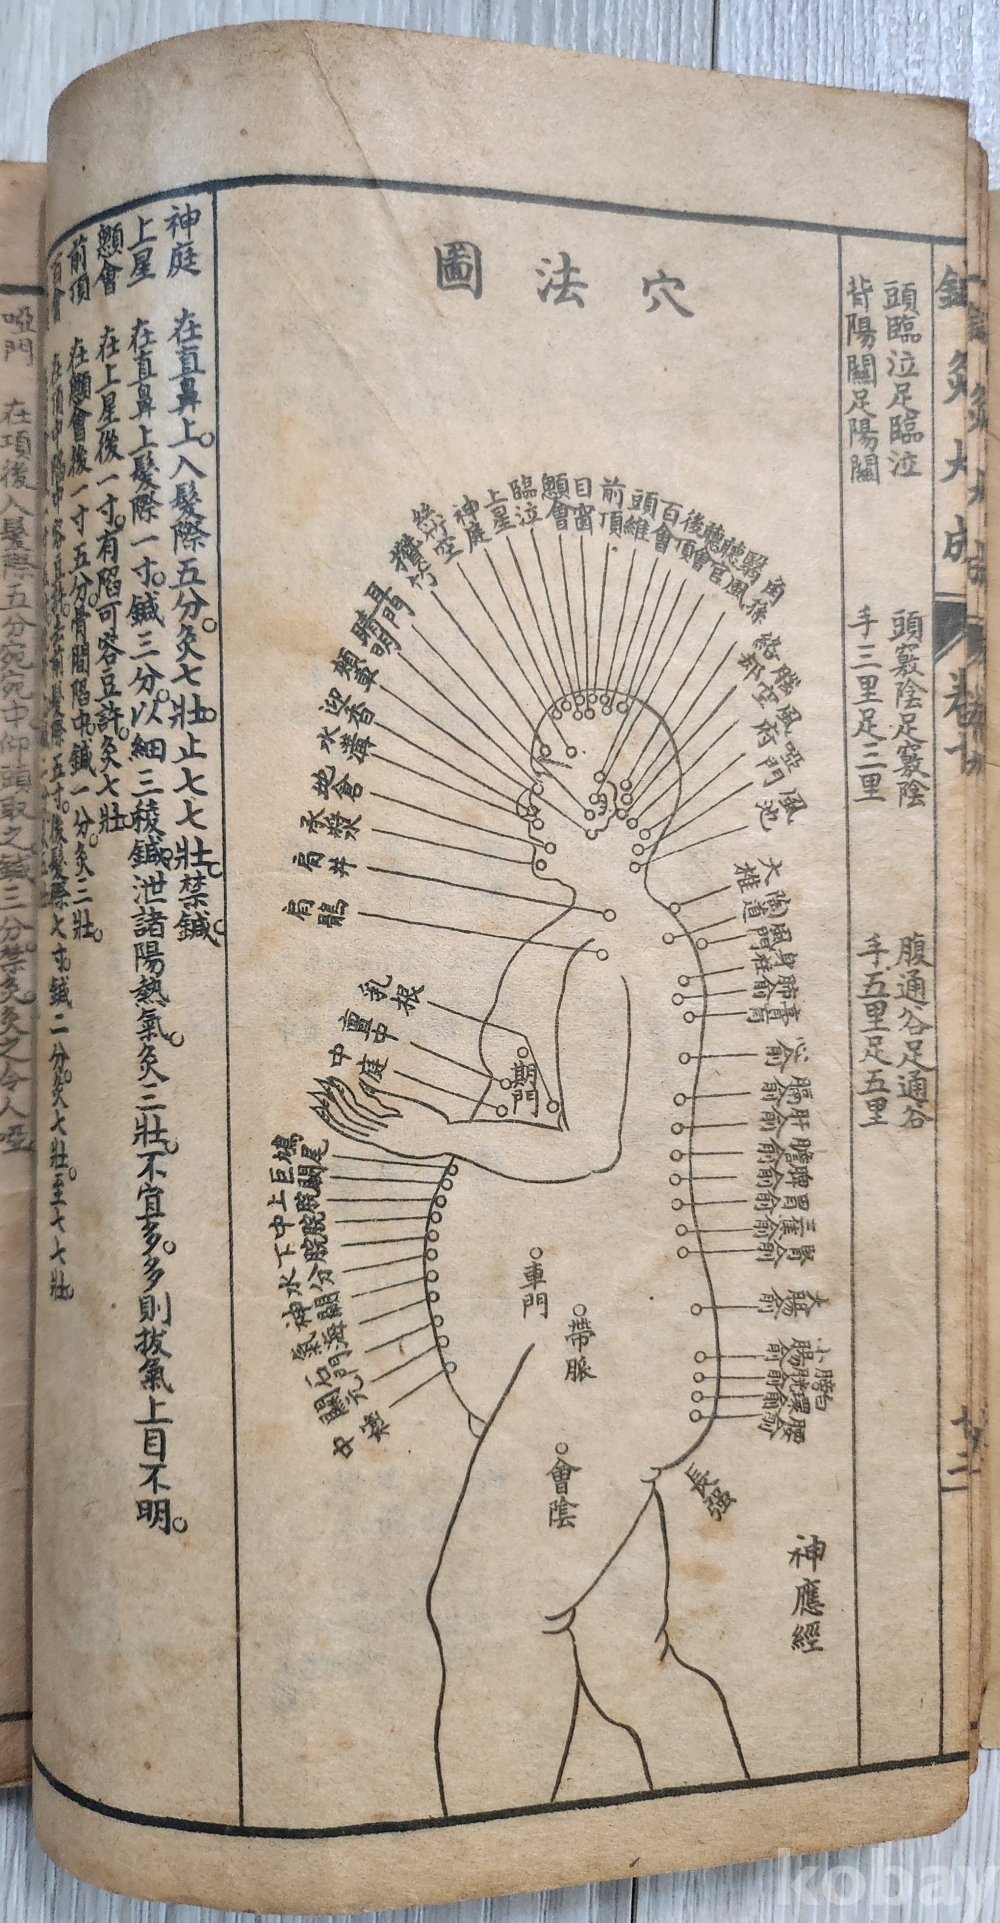 鍼灸大成
卷七
頭臨泣足臨泣
頭竅陰足竅陰
腹通谷足通谷
背陽關足陽關
手三里足三里
手五里足五里
穴法圖
神應經
攢竹
絲竹空
神庭
上星
臨泣
顖會
目窗
前頂
頭維
百會
後頂
聽會
聽官
翳風
角孫
絡却
腦空
風府
啞門
風池
耳門
睛明
迎香
水溝
地倉
承漿
肩井
肩髃
大椎
陶道
風門
身柱
肺俞
膏肓
心俞
膈俞
肝俞
膽俞
脾俞
胃俞
三焦俞
腎俞
大腸俞
小腸俞
膀胱俞
白環俞
腰俞
長强
乳根
亶中
中庭
期門
鳩尾
巨闕
上脘
中脘
下脘
水分
神闕
氣海
石門
關元
中極
章門
帶脈
會陰
神庭 在直鼻上。入髮際五分。灸七壯。止七七壯。禁鍼。
上星 在直鼻上髮際一寸。鍼三分。以細三稜鍼泄諸陽熱氣。灸三壯。不宜多。多則拔氣上目不明。
顖會 在上星後一寸。有陷可容豆許。灸七壯
前頂 在顖會後一寸五分。骨間陷中。鍼一分。灸三壯。
百會 在頂中陷中容豆許。去前髮際五寸。後髮際七寸。鍼二分。灸七壯。至七七壯。
啞門 在項後入髮際五分宛宛中仰頭取之鍼三分禁灸。灸之令人啞
kobay